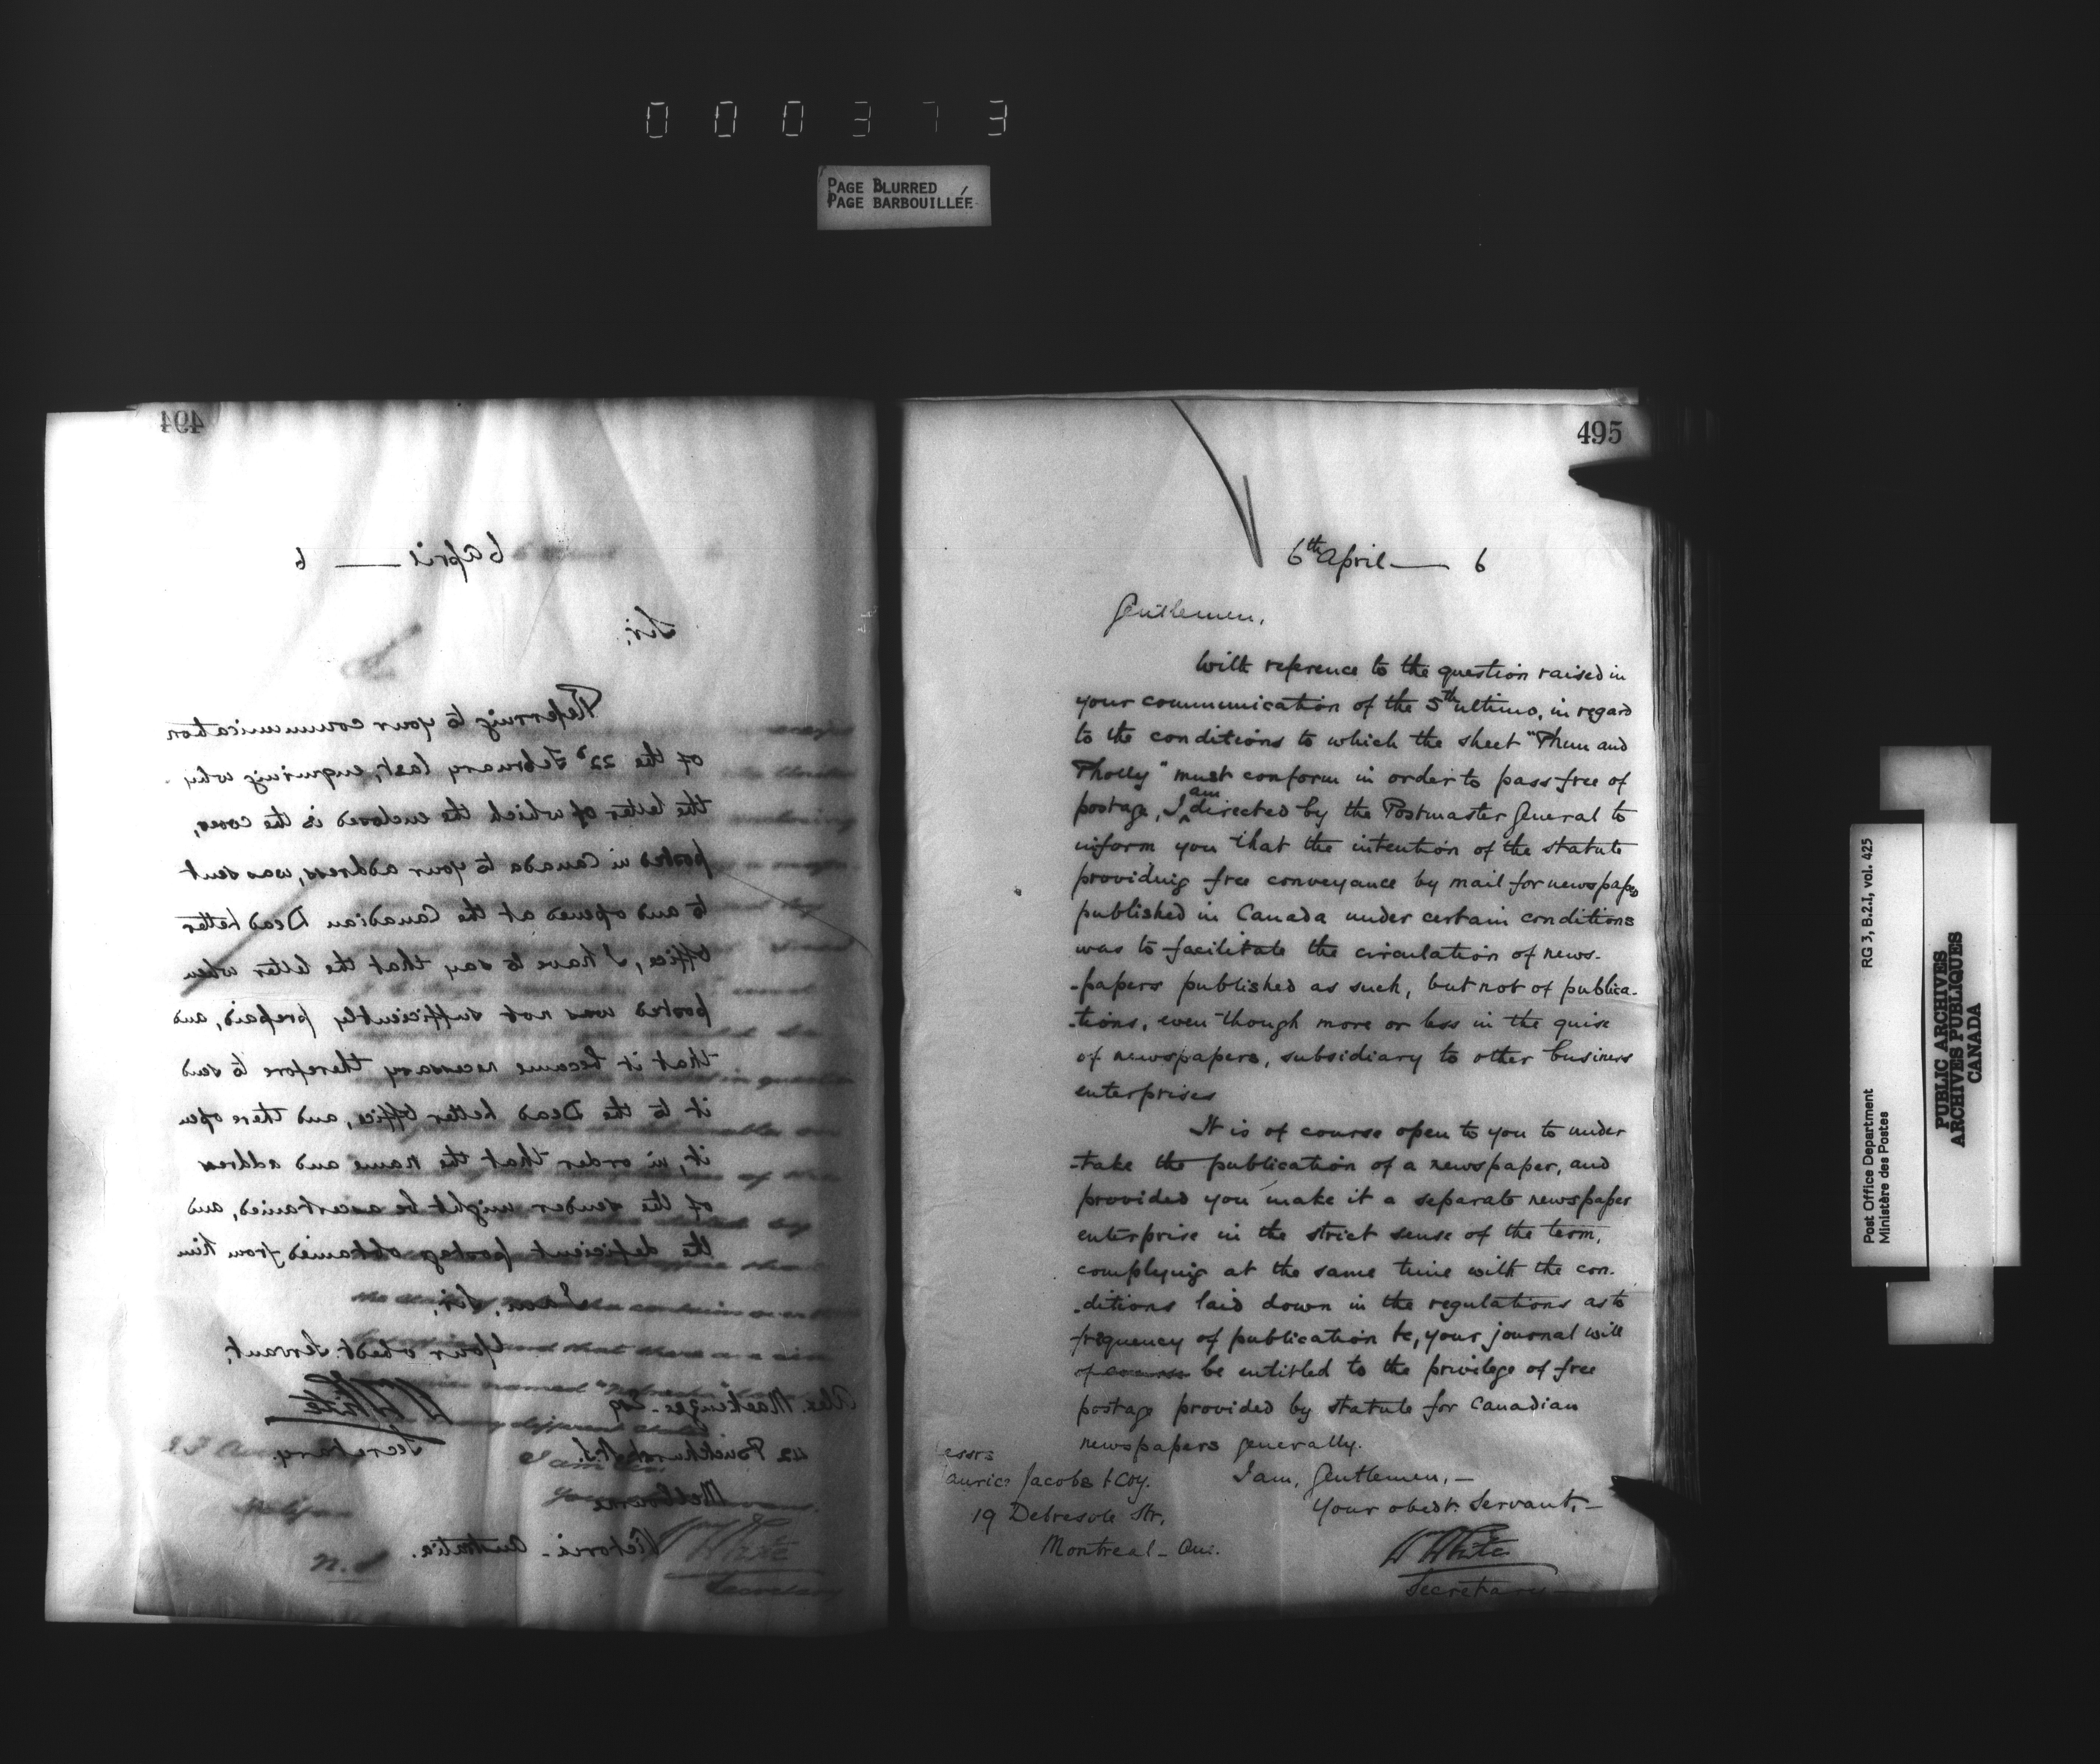 000373
PAGE BLURRED
PAGE BARBOUILLÉE
494
6 April — 6
Sir,
Referring to your communication
of the 22d February last, enquiring why
the letter of which the enclosed is the cover,
posted in Canada to your address, was sent
to and opened at the Canadian Dead Letter
Office, I have to say that the letter when
posted was not sufficiently prepaid, and
that it became necessary therefore to send
it to the Dead Letter Office, and there open
it, in order that the name and address
of the sender might be ascertained, and
the deficient postage obtained from him
Sir,
Your obedt. Servant,
W White
Secretary.
Alex. Mackenzie Esq
42
Melbourne
Victoria - Australia.
495
6th April — 6
Gentlemen,
With reference to the question raised in
your communication of the 5th ultimo, in regard
to the conditions to which the sheet "Phun and
Pholly" must conform in order to pass free of
postage, I am directed by the Postmaster General to
inform you that the intention of the statute
providing free conveyance by mail for newspapers
published in Canada under certain conditions
was to facilitate the circulation of news-
-papers published as such, but not of publica-
-tions, even though more or less in the guise
of newspapers, subsidiary to other business
enterprises
It is of course open to you to under
-take the publication of a newspaper, and
provided you make it a separate newspaper
enterprise in the strict sense of the term,
complying at the same time with the con-
-ditions laid down in the regulations as to
frequency of publication &c, your journal will
of course be entitled to the privilege of free
postage provided by statute for Canadian
newspapers generally.
I am, Gentlemen, —
Your obedt. Servant, —
W White
Secretary
essrs
aurice Jacobs & Coy.
19 Debresole Str,
Montreal - Que.
Post Office Department
Ministère des Postes
RG 3, B.2.I, vol. 425
PUBLIC ARCHIVES
ARCHIVES PUBLIQUES
CANADA